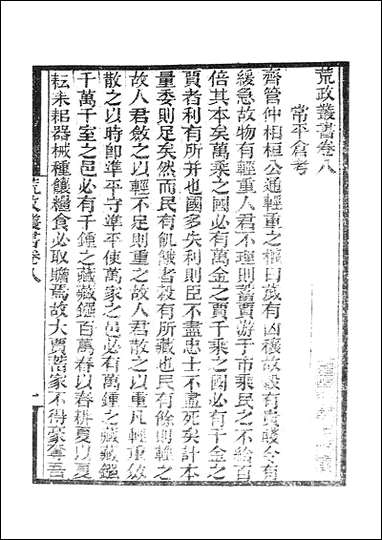 荒政叢書卷八
常平倉考
齊管仲相桓公通輕重之權曰歲有凶穰故穀有貴賤令有
緩急故物有輕重人君不理則畜賈游于市乘民之不給百
倍其本矣萬乘之國必有萬金之賈千乘之國必有千金之
賈者利有所并也國多失利則臣不盡忠士不盡死矣計本
量委則足矣然而民有飢餓者穀有所藏也民有餘則輕之
故人君斂之以輕不足則重之故人君散之以重凡輕重斂
散之以時即準平守準平使萬家之邑必有萬鍾之藏藏鏹
千萬千室之邑必有千鍾之藏藏鏹百萬春以奉耕夏以奉
耘耒耜器械種餉糧食必取贍焉故大賈畜家不得豪奪吾
荒政叢書卷八
一